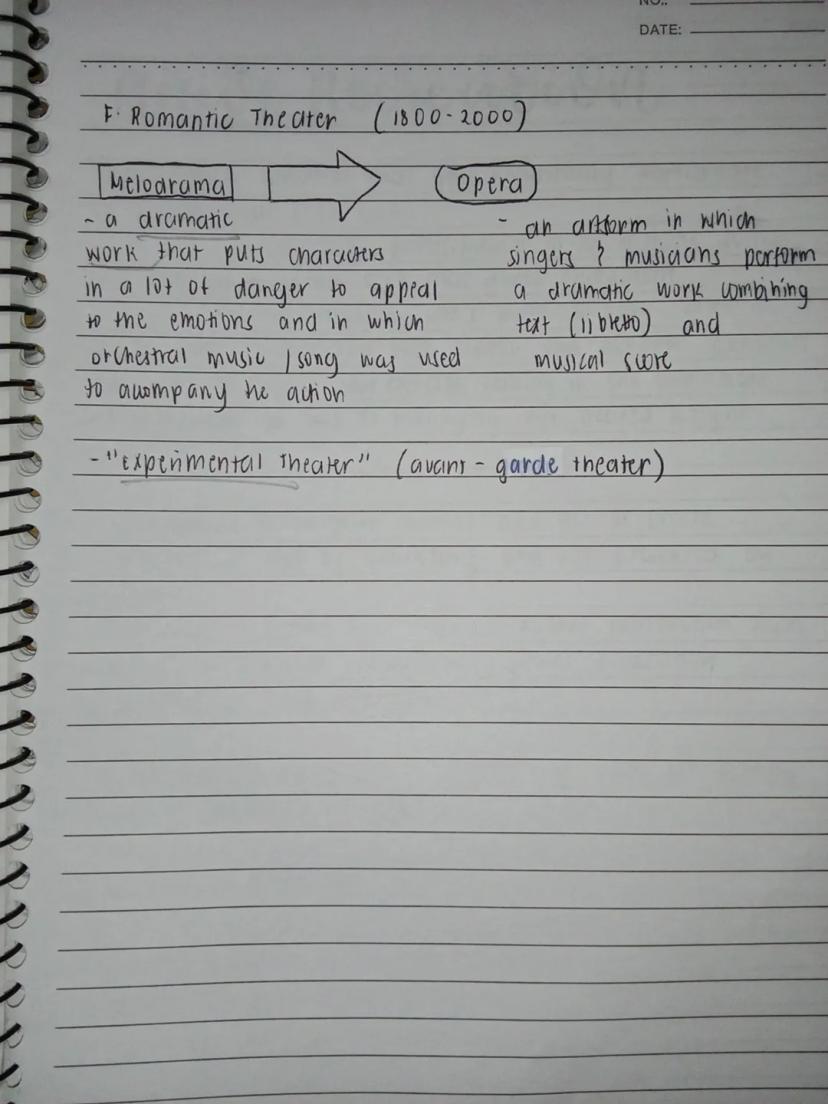 NO.:
DATE:
F. Romantic Theater (1800-2000)
Melodrama
- a dramatic
work that puts characters
in a lot of danger to appeal
to the emotions and in which
orchestral music / song was used
to accompany the action
Opera
- an artform in which
singers & musicians perform
a dramatic work combining
text (libretto) and
musical score
- "Experimental Theater" (avant - garde theater)